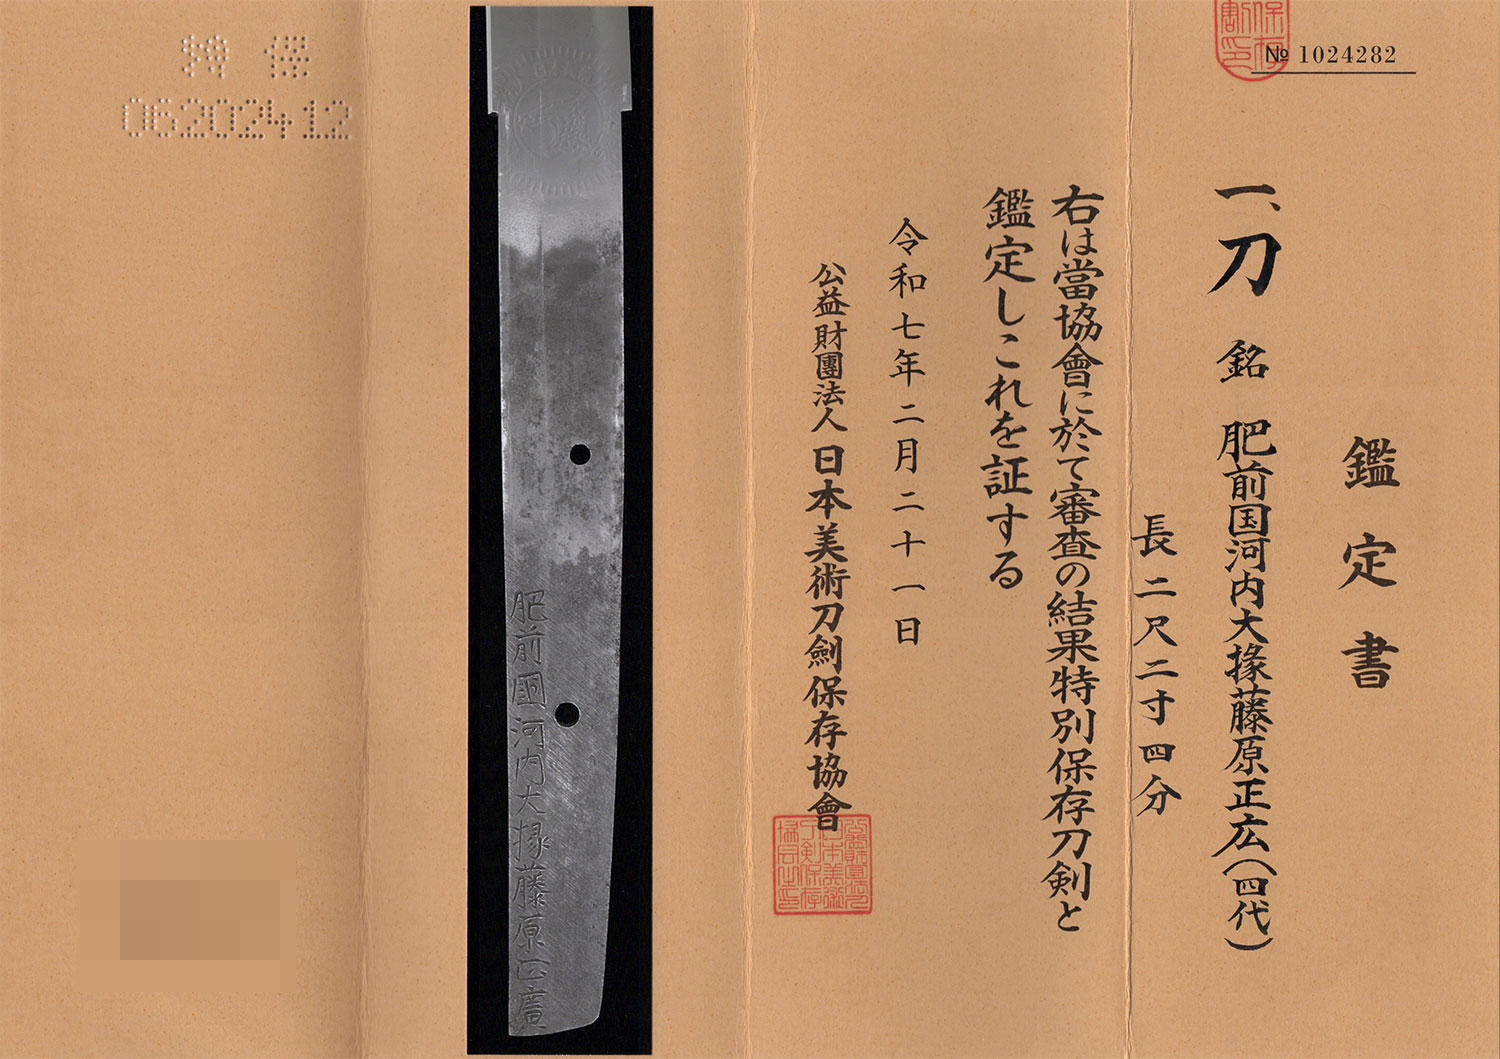 № 1024282
鑑定書
一、刀 銘 肥前国河内大掾藤原正広(四代)
長二尺二寸四分
右は當協會に於て審査の結果特別保存刀剣と
鑑定しこれを証する
令和七年二月二十一日
公益財團法人日本美術刀劍保存協會
肥前國河内大掾藤原正廣
特保
06202412